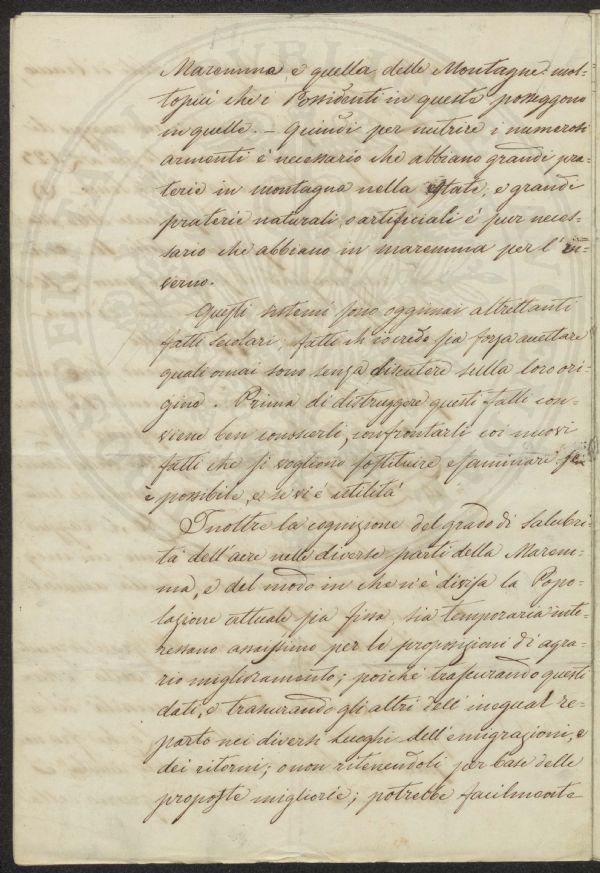 Maremma, e quella delle Montagne: mol-
topiù che i Possidenti in queste posseggono
in quelle. — Quindi per nutrire i numerosi
armenti è necessario che abbiano grandi pra-
terie in montagna nella state, e grandi
praterie naturali, o artificiali è pur neces-
sario che abbiano in maremma per l'in-
verno.
Questi sistemi sono oggimai altrettanti
fatti secolari, fatti ch'io credo sia forza accettare
quali omai sono senza discutere sulla loro ori-
gine. Prima di distruggere questi fatti con-
viene ben conoscerli, confrontarli coi nuovi
fatti che si vogliono sostituire, esaminare se
è possibile, e se vi è utilità
Inoltre la cognizione del grado di salubri-
tà dell'aere nelle diverse parti della Marem-
ma, e del modo in che vi è divisa la Popo-
lazione attuale sia fissa, sia temporaria inte-
ressano assaissimo per le proposizioni di agra-
rio miglioramento; poiché trascurando questi
dati, e trascurando gli altri dell'inegual re-
parto nei diversi luoghi dell'emigrazioni, e
dei ritorni; o non ritenendoli per base delle
proposte migliorie; potrebbe facilmente